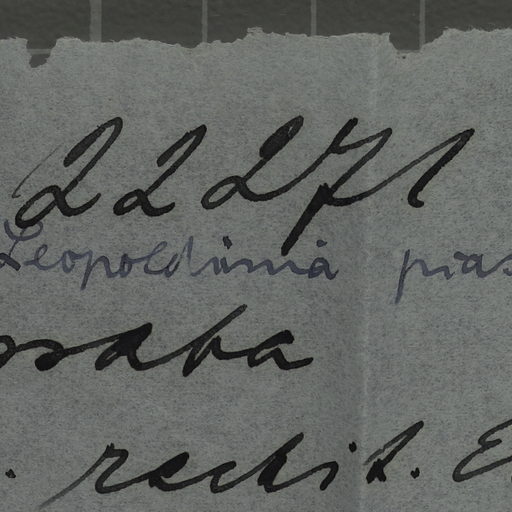 22271
Leopoldinia pias
osaba
. rechts. E